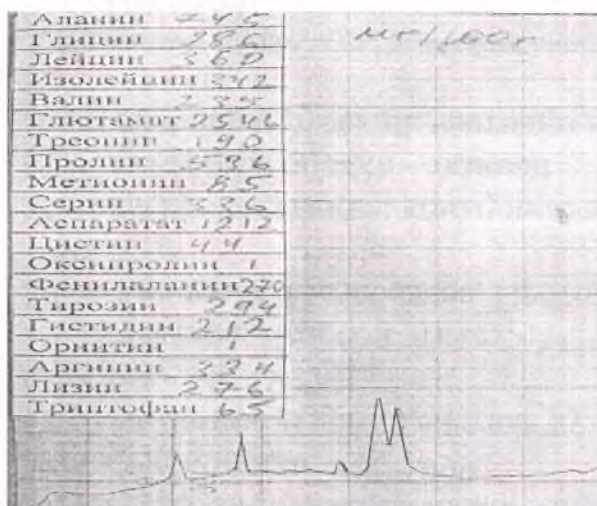 Аланин 245
Глицин 286
мг/100г
Лейцин 360
Изолейцин 342
Валин 235
Глютамат 2546
Треонин 190
Пролин 536
Метионин 85
Серин 336
Аспаратат 1212
Цистин 44
Оксипролин 1
Фенилаланин 270
Тирозин 294
Гистидин 212
Орнитин 1
Аргинин 334
Лизин 276
Триптофан 65